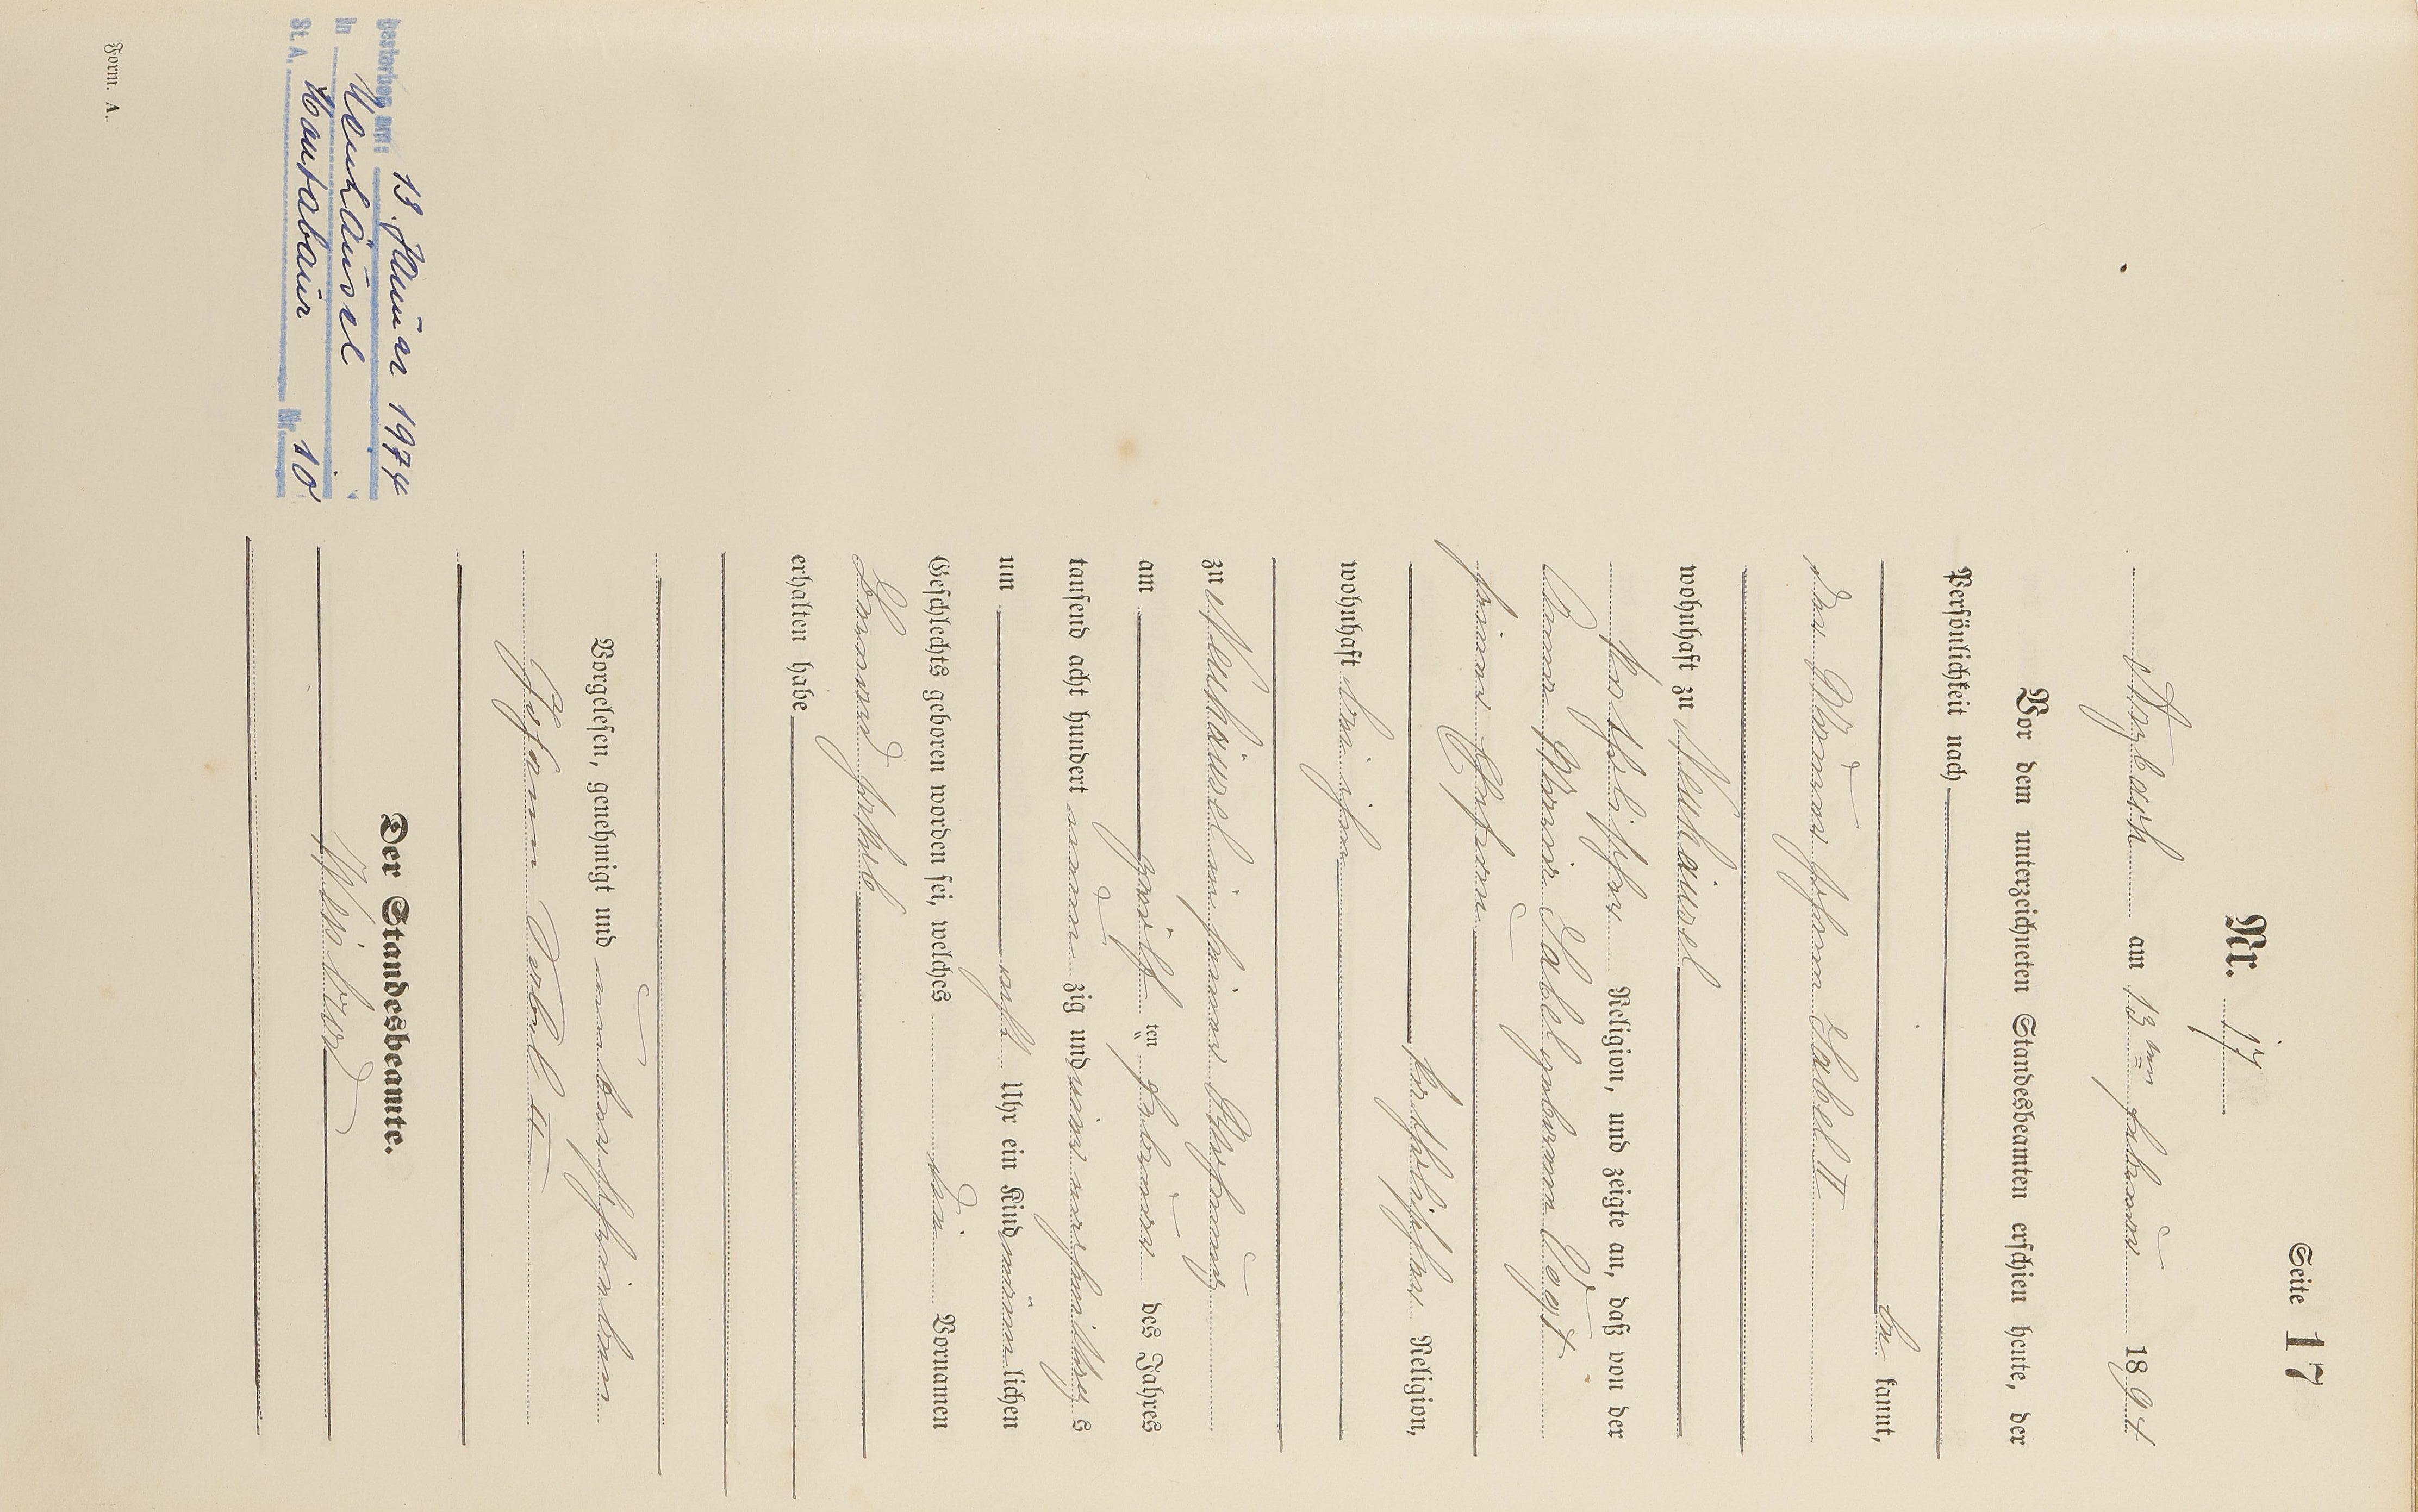 Seite 17
Nr. 17
Arzbach am 13ten Februar 1894
Vor dem unterzeichneten Standesbeamten erschien heute, der
Persönlichkeit nach
be kannt,
der Maurer Johann Label II
wohnhaft zu Neuhäusel
katholischer Religion, und zeigte an, daß von der
Anna Maria Label geborenen Vogt
seiner Ehefrau
katholischer Religion,
wohnhaft bei ihm
zu Neuhäusel in seiner Wohnung
am zwölf ten Februar des Jahres
tausend acht hundert neun zig und vier nachmittags
um acht Uhr ein Kind männlichen
Geschlechts geboren worden sei, welches den Vornamen
Jakob
erhalten habe
Vorgelesen, genehmigt und unterschrieben
Johann Label II
Der Standesbeamte.
gestorben am: 13. Januar 1974
in Neuhäusel
St. A. Montabaur Nr. 10
Form. A.